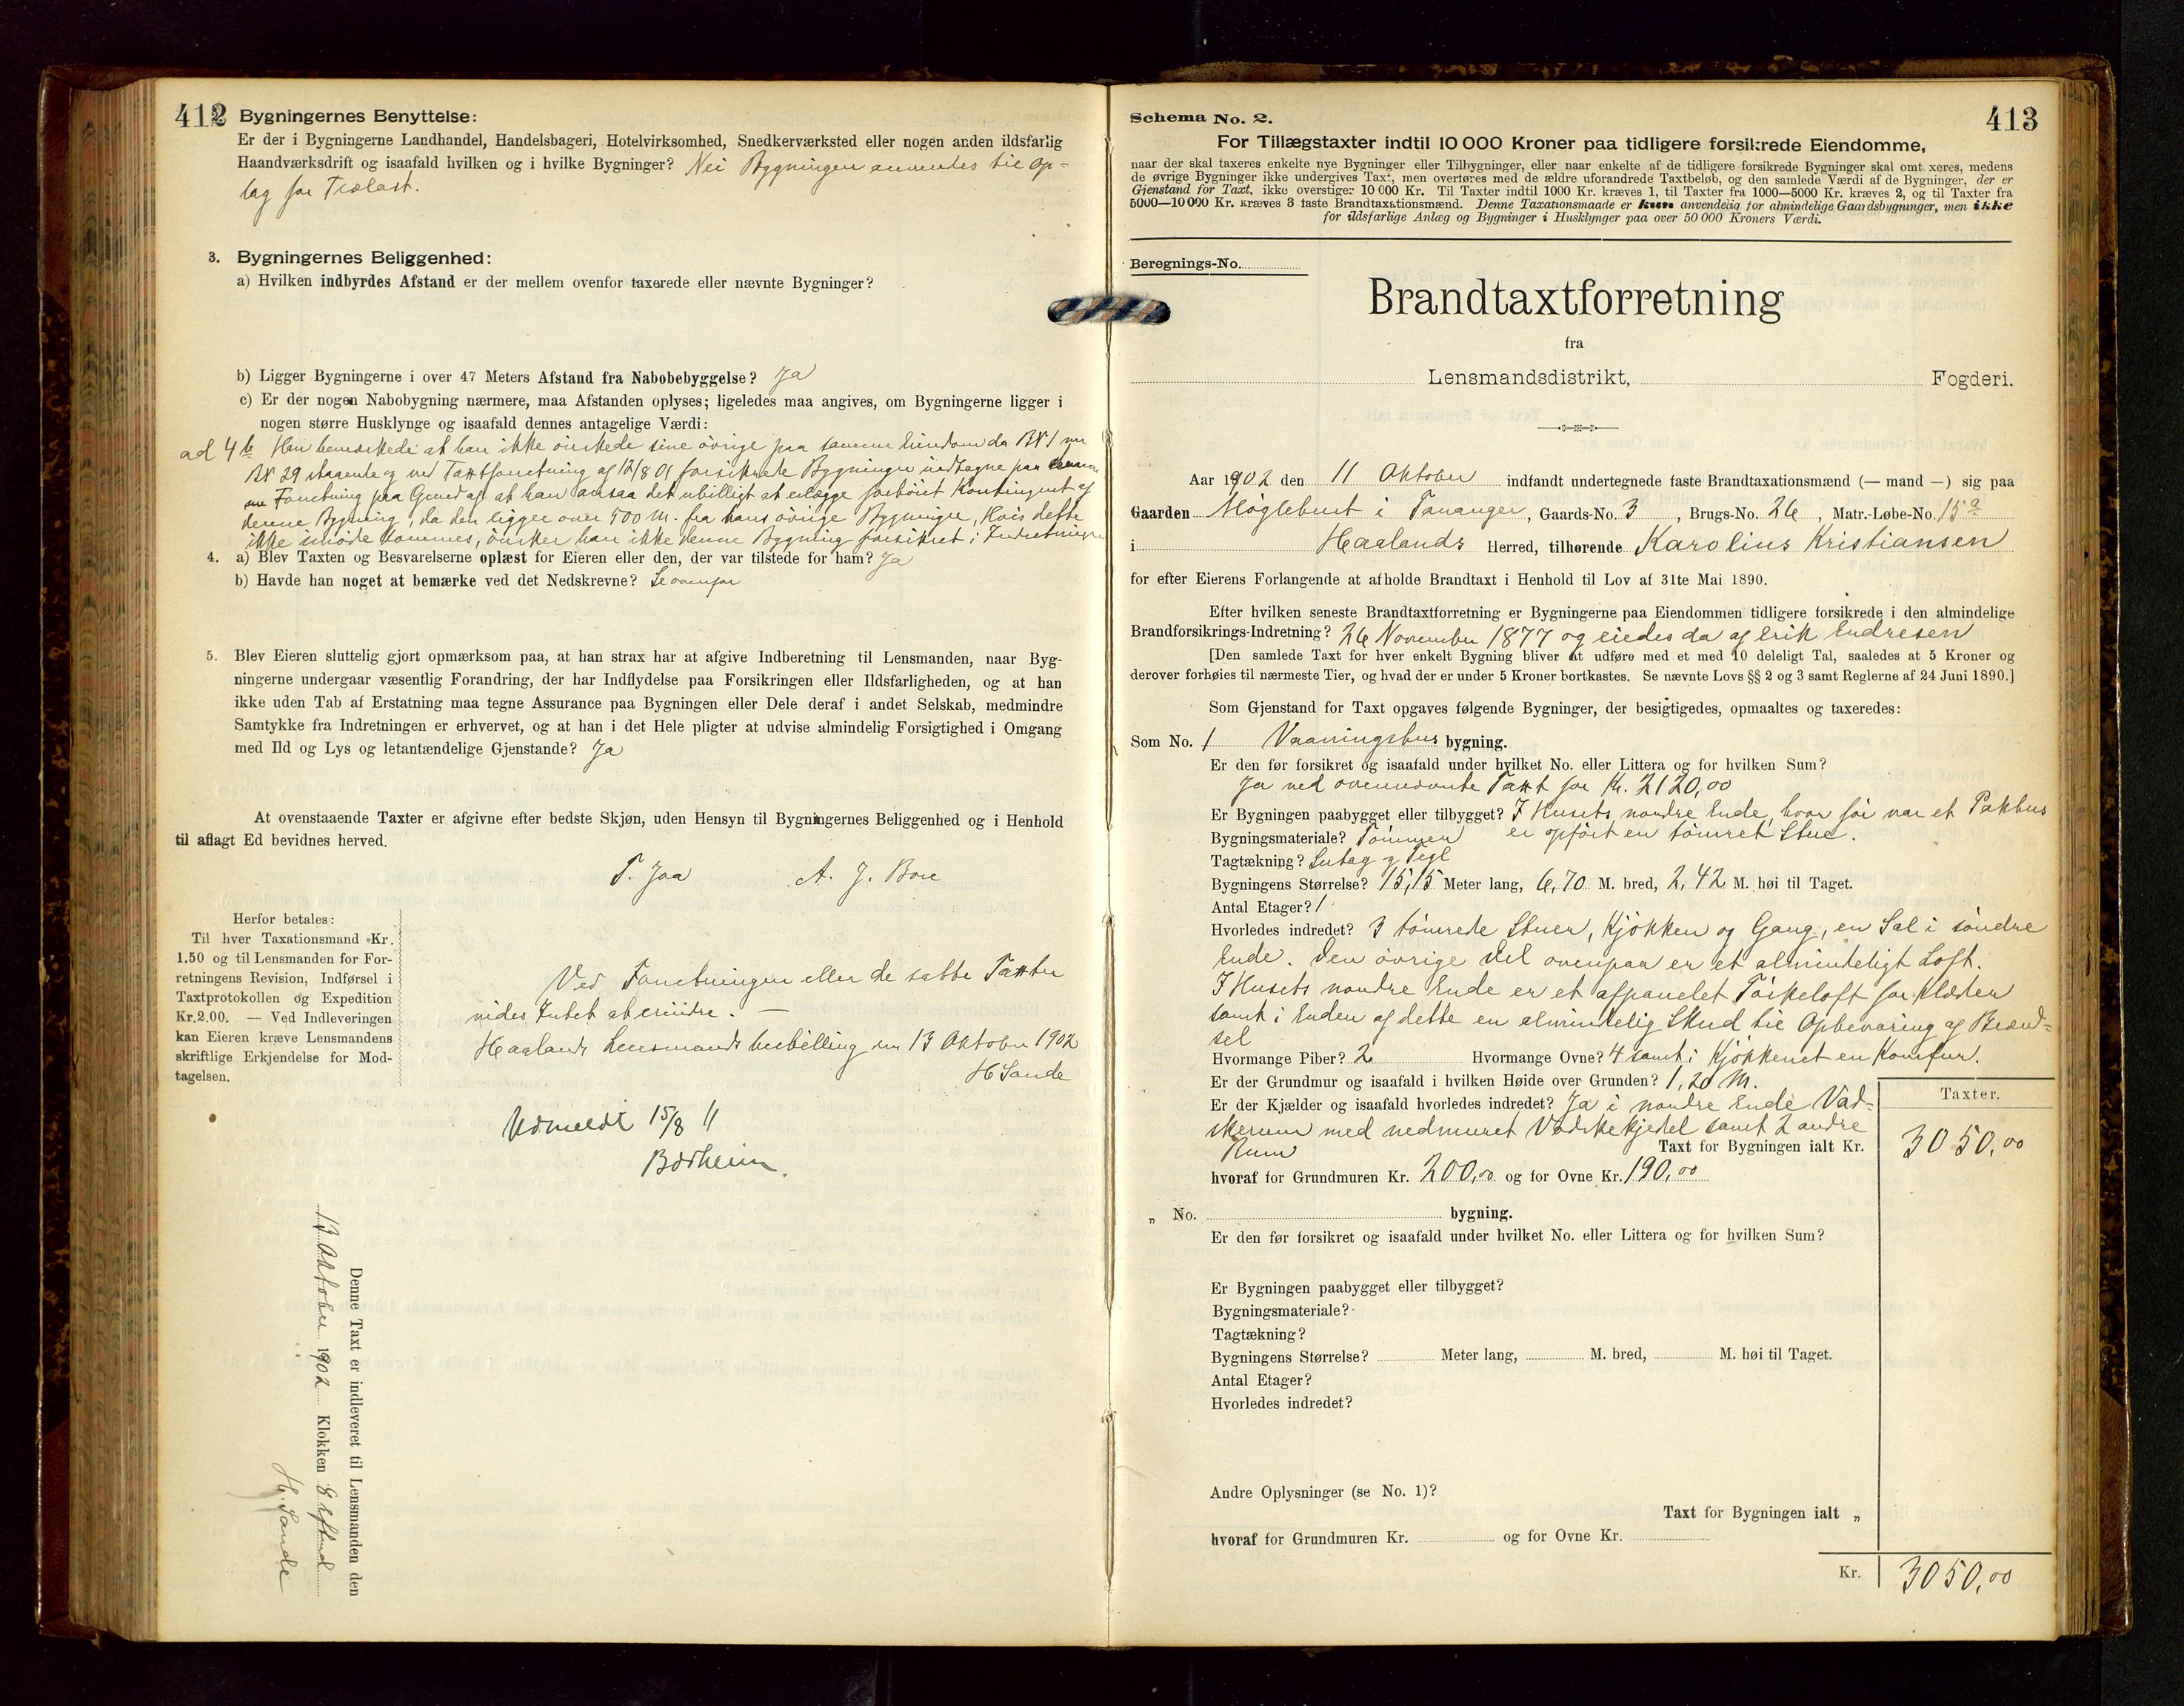 412 Bygningernes Benyttelse:
Er der i Bygningerne Landhandel, Handelsbageri, Hotelvirksomhed, Snedkerværksted eller nogen anden ildsfarlig
Haandværksdrift og isaafald hvilken og i hvilke Bygninger? Nei Bygningen anvendes til Op-
lag for Trælast.
3. Bygningernes Beliggenhed:
a) Hvilken indbyrdes Afstand er der mellem ovenfor taxerede eller nævnte Bygninger?
b) Ligger Bygningerne i over 47 Meters Afstand fra Nabobebyggelse? Ja
c) Er der nogen Nabobygning nærmere, maa Afstanden oplyses; ligeledes maa angives, om Bygningerne ligger i
nogen større Husklynge og isaafald dennes antagelige Værdi:
ad 4 b Han bemærkede at han ikke önskede sine övrige paa samme Eiendom da
29 staaende og ved Taxtforretning af 12/8 01 forsikrede Bygninger indtagne paa
Forretning paa Grund af at han ansaa det ubilligt at erlægge forhöiet Kontingent af
denne Bygning, da den ligger over 500 M. fra hans övrige Bygninger, Hvis dette
ikke imödekommes, önsker han ikke denne Bygning forsikret i Indretningen
4. a) Blev Taxten og Besvarelserne oplæst for Eieren eller den, der var tilstede for ham? Ja
b) Havde han noget at bemærke ved det Nedskrevne? Se ovenfor
5. Blev Eieren sluttelig gjort opmærksom paa, at han strax har at afgive Indberetning til Lensmanden, naar Byg-
ningerne undergaar væsentlig Forandring, der har Indflydelse paa Forsikringen eller Ildsfarligheden, og at han
ikke uden Tab af Erstatning maa tegne Assurance paa Bygningen eller Dele deraf i andet Selskab, medmindre
Samtykke fra Indretningen er erhvervet, og at han i det Hele pligter at udvise almindelig Forsigtighed i Omgang
med Ild og Lys og letantændelige Gjenstande? Ja
At ovenstaaende Taxter er afgivne efter bedste Skjøn, uden Hensyn til Bygningernes Beliggenhed og i Henhold
til aflagt Ed bevidnes herved.
T. Jaa A. J. Bore
Herfor betales:
Til hver Taxationsmand Kr.
1.50 og til Lensmanden for For-
retningens Revision, Indførsel i
Taxtprotokollen og Expedition
Kr. 2.00. — Ved Indleveringen
kan Eieren kræve Lensmandens
skriftlige Erkjendelse for Mod-
tagelsen.
Ved Forretningen eller de satte Taxter
vides Intet at erindre. —
Haalands Lensmandsbestilling den 13 Oktober 1902
H Sande
Udmeldt 15/8 11
Bærheim.
Denne Taxt er indleveret til Lensmanden den
13 Oktober 1902 Klokken 8 Eftmd
H. Sande
Schema No. 2. 413
For Tillægstaxter indtil 10 000 Kroner paa tidligere forsikrede Eiendomme,
naar der skal taxeres enkelte nye Bygninger eller Tilbygninger, eller naar enkelte af de tidligere forsikrede Bygninger skal omt xeres, medens
de øvrige Bygninger ikke undergives Taxt, men overføres med de ældre uforandrede Taxtbeløb, og den samlede Værdi af de Bygninger, der er
Gjenstand for Taxt, ikke overstiger 10 000 Kr. Til Taxter indtil 1000 Kr. kræves 1, til Taxter fra 1000—5000 Kr. kræves 2, og til Taxter fra
5000—10 000 Kr. kræves 3 faste Brandtaxationsmænd. Denne Taxationsmaade er kun anvendelig for almindelige Gaardsbygninger, men ikke
for ildsfarlige Anlæg og Bygninger i Husklynger paa over 50 000 Kroners Værdi.
Beregnings-No.
Brandtaxtforretning
fra
Lensmandsdistrikt, Fogderi.
Aar 1902 den 11 Oktober indfandt undertegnede faste Brandtaxationsmænd (— mand —) sig paa
Gaarden Möglebust i Tananger, Gaards-No. 3, Brugs-No. 26, Matr.-Løbe-No. 15a
i Haalands Herred, tilhørende Karolius Kristiansen
for efter Eierens Forlangende at afholde Brandtaxt i Henhold til Lov af 31te Mai 1890.
Efter hvilken seneste Brandtaxtforretning er Bygningerne paa Eiendommen tidligere forsikrede i den almindelige
Brandforsikrings-Indretning? 26 November 1877 og eiedes da af Erik Endresen
[Den samlede Taxt for hver enkelt Bygning bliver at udføre med et med 10 deleligt Tal, saaledes at 5 Kroner og
derover forhøies til nærmeste Tier, og hvad der er under 5 Kroner bortkastes. Se nævnte Lovs §§ 2 og 3 samt Reglerne af 24 Juni 1890.]
Som Gjenstand for Taxt opgaves følgende Bygninger, der besigtigedes, opmaaltes og taxeredes:
Som No. 1 Vaaningshus bygning.
Er den før forsikret og isaafald under hvilket No. eller Littera og for hvilken Sum?
Ja ved ovennævnte Taxt for Kr. 2120,00
Er Bygningen paabygget eller tilbygget? I Husets nordre Ende, hvor för var et Pakhus
Bygningsmateriale? Tömmer er opfört en tömret Stue.
Tagtækning? Sutag og Tegl
Bygningens Størrelse? 15,15 Meter lang, 6,70 M. bred, 2,42 M. høi til Taget.
Antal Etager? 1
Hvorledes indredet? 3 tömrede Stuer, Kjökken og Gang, en Sal i söndre
Ende. Den övrige Del ovenpaa er et almindeligt Loft.
I Husets nordre Ende er et afpanelet Törkeloft for Klæder
samt i Enden af dette en almindelig Skud til Opbevaring af Brænd-
sel
Hvormange Piber? 2 Hvormange Ovne? 4 samt i Kjökkenet en Komfur.
Er der Grundmur og isaafald i hvilken Høide over Grunden? 1,20 M.
Er der Kjælder og isaafald hvorledes indredet? Ja i nordre Ende Vad-
skerum med nedmuret Vadskekjedel samt 2 andre
Rum
Taxter.
Taxt for Bygningen ialt Kr. 3050,00
hvoraf for Grundmuren Kr. 200,00 og for Ovne Kr. 190,00
„ No. bygning.
Er den før forsikret og isaafald under hvilket No. eller Littera og for hvilken Sum?
Er Bygningen paabygget eller tilbygget?
Bygningsmateriale?
Tagtækning?
Bygningens Størrelse? Meter lang, M. bred, M. høi til Taget.
Antal Etager?
Hvorledes indredet?
Andre Oplysninger (se No. 1)?
Taxt for Bygningen ialt „
hvoraf for Grundmuren Kr. og for Ovne Kr.
Kr. 3050,00